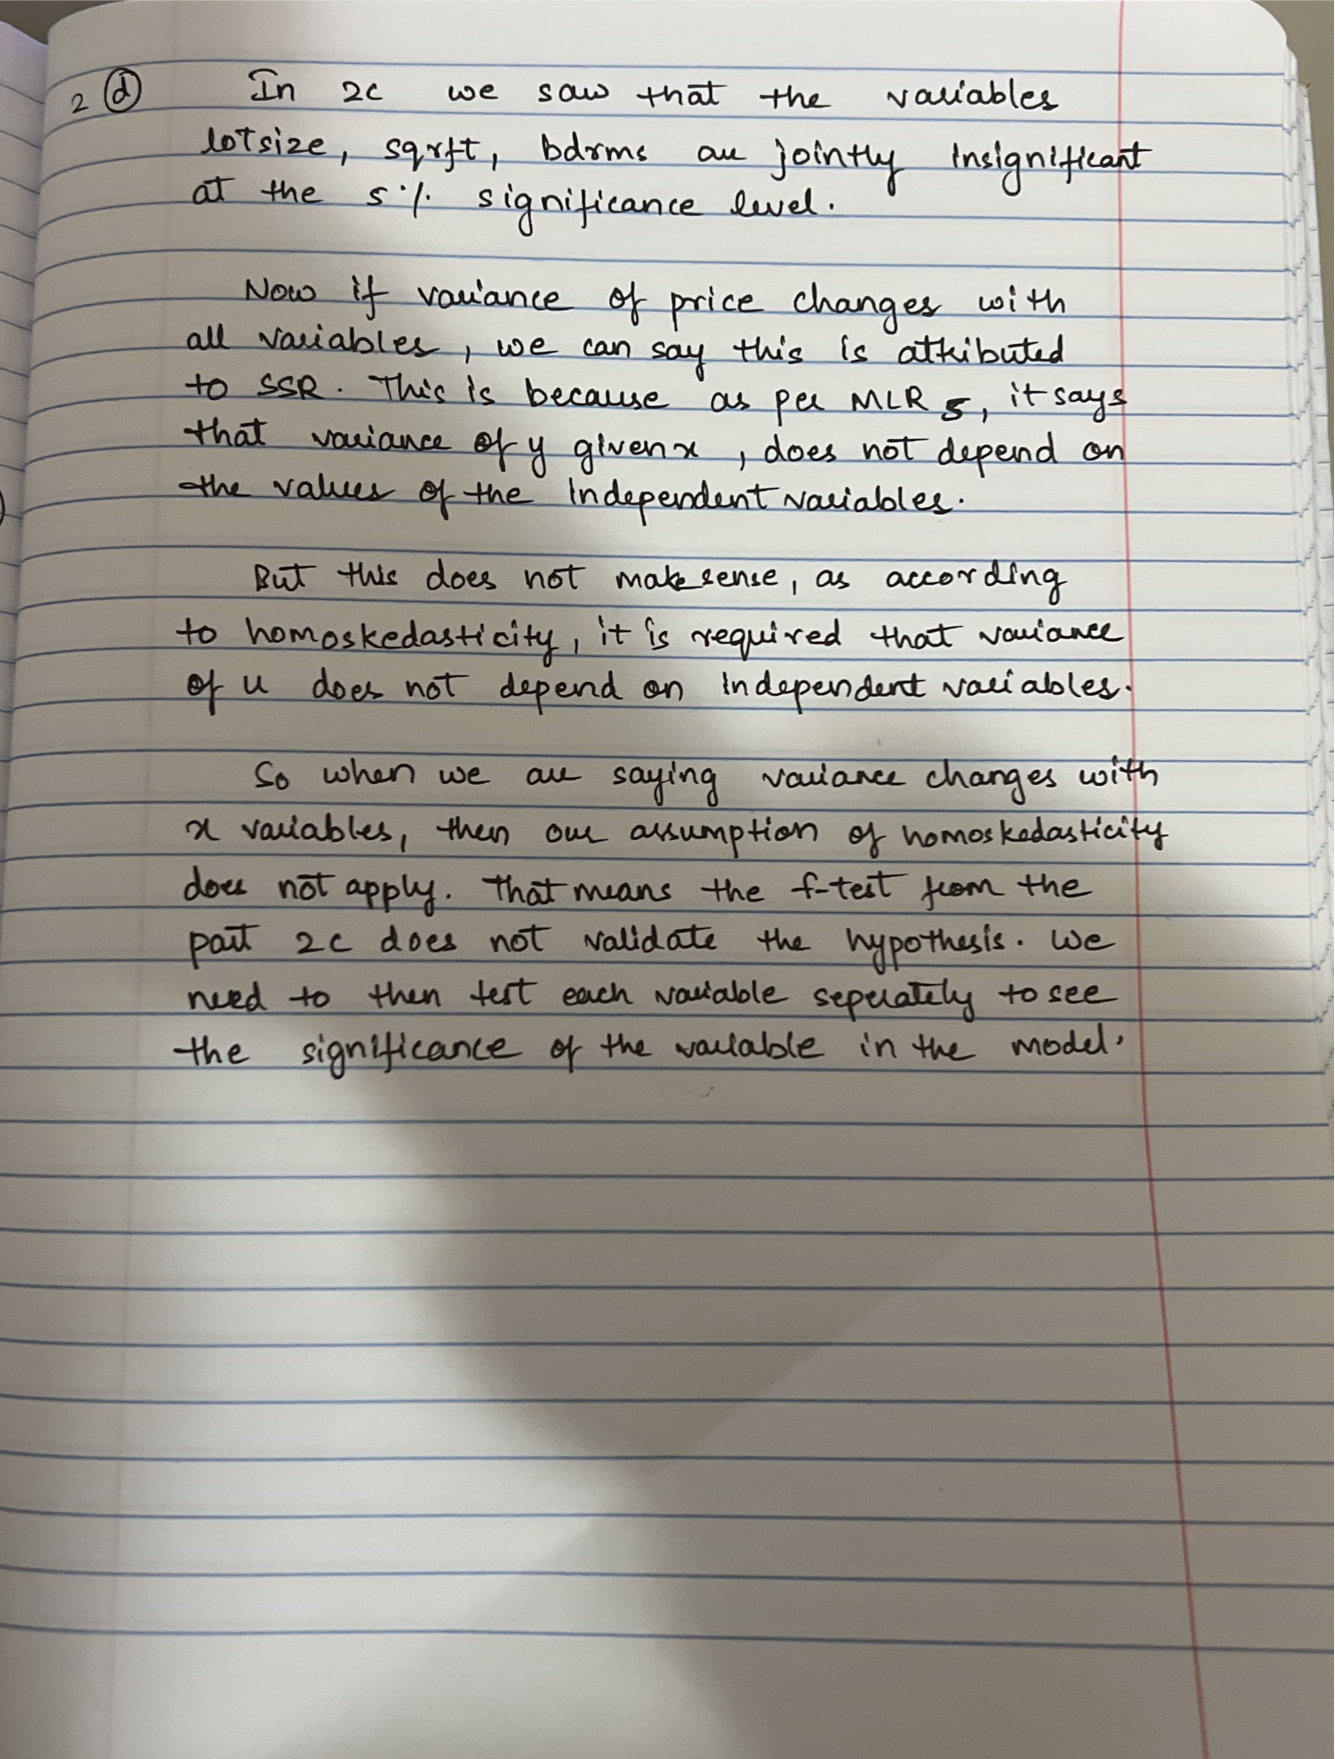 2 (d) In 2c we saw that the variables
lotsize, sqrft, bdrms are jointly insignificant
at the 5% significance level.
Now if variance of price changes with
all variables, we can say this is attributed
to SSR. This is because as per MLR 5, it says
that variance of y given x, does not depend on
the values of the independent variables.
But this does not make sense, as according
to homoskedasticity, it is required that variance
of u does not depend on independent variables.
So when we are saying variance changes with
x variables, then our assumption of homoskedasticity
does not apply. That means the f-test from the
part 2c does not validate the hypothesis. We
need to then test each variable seperately to see
the significance of the variable in the model.